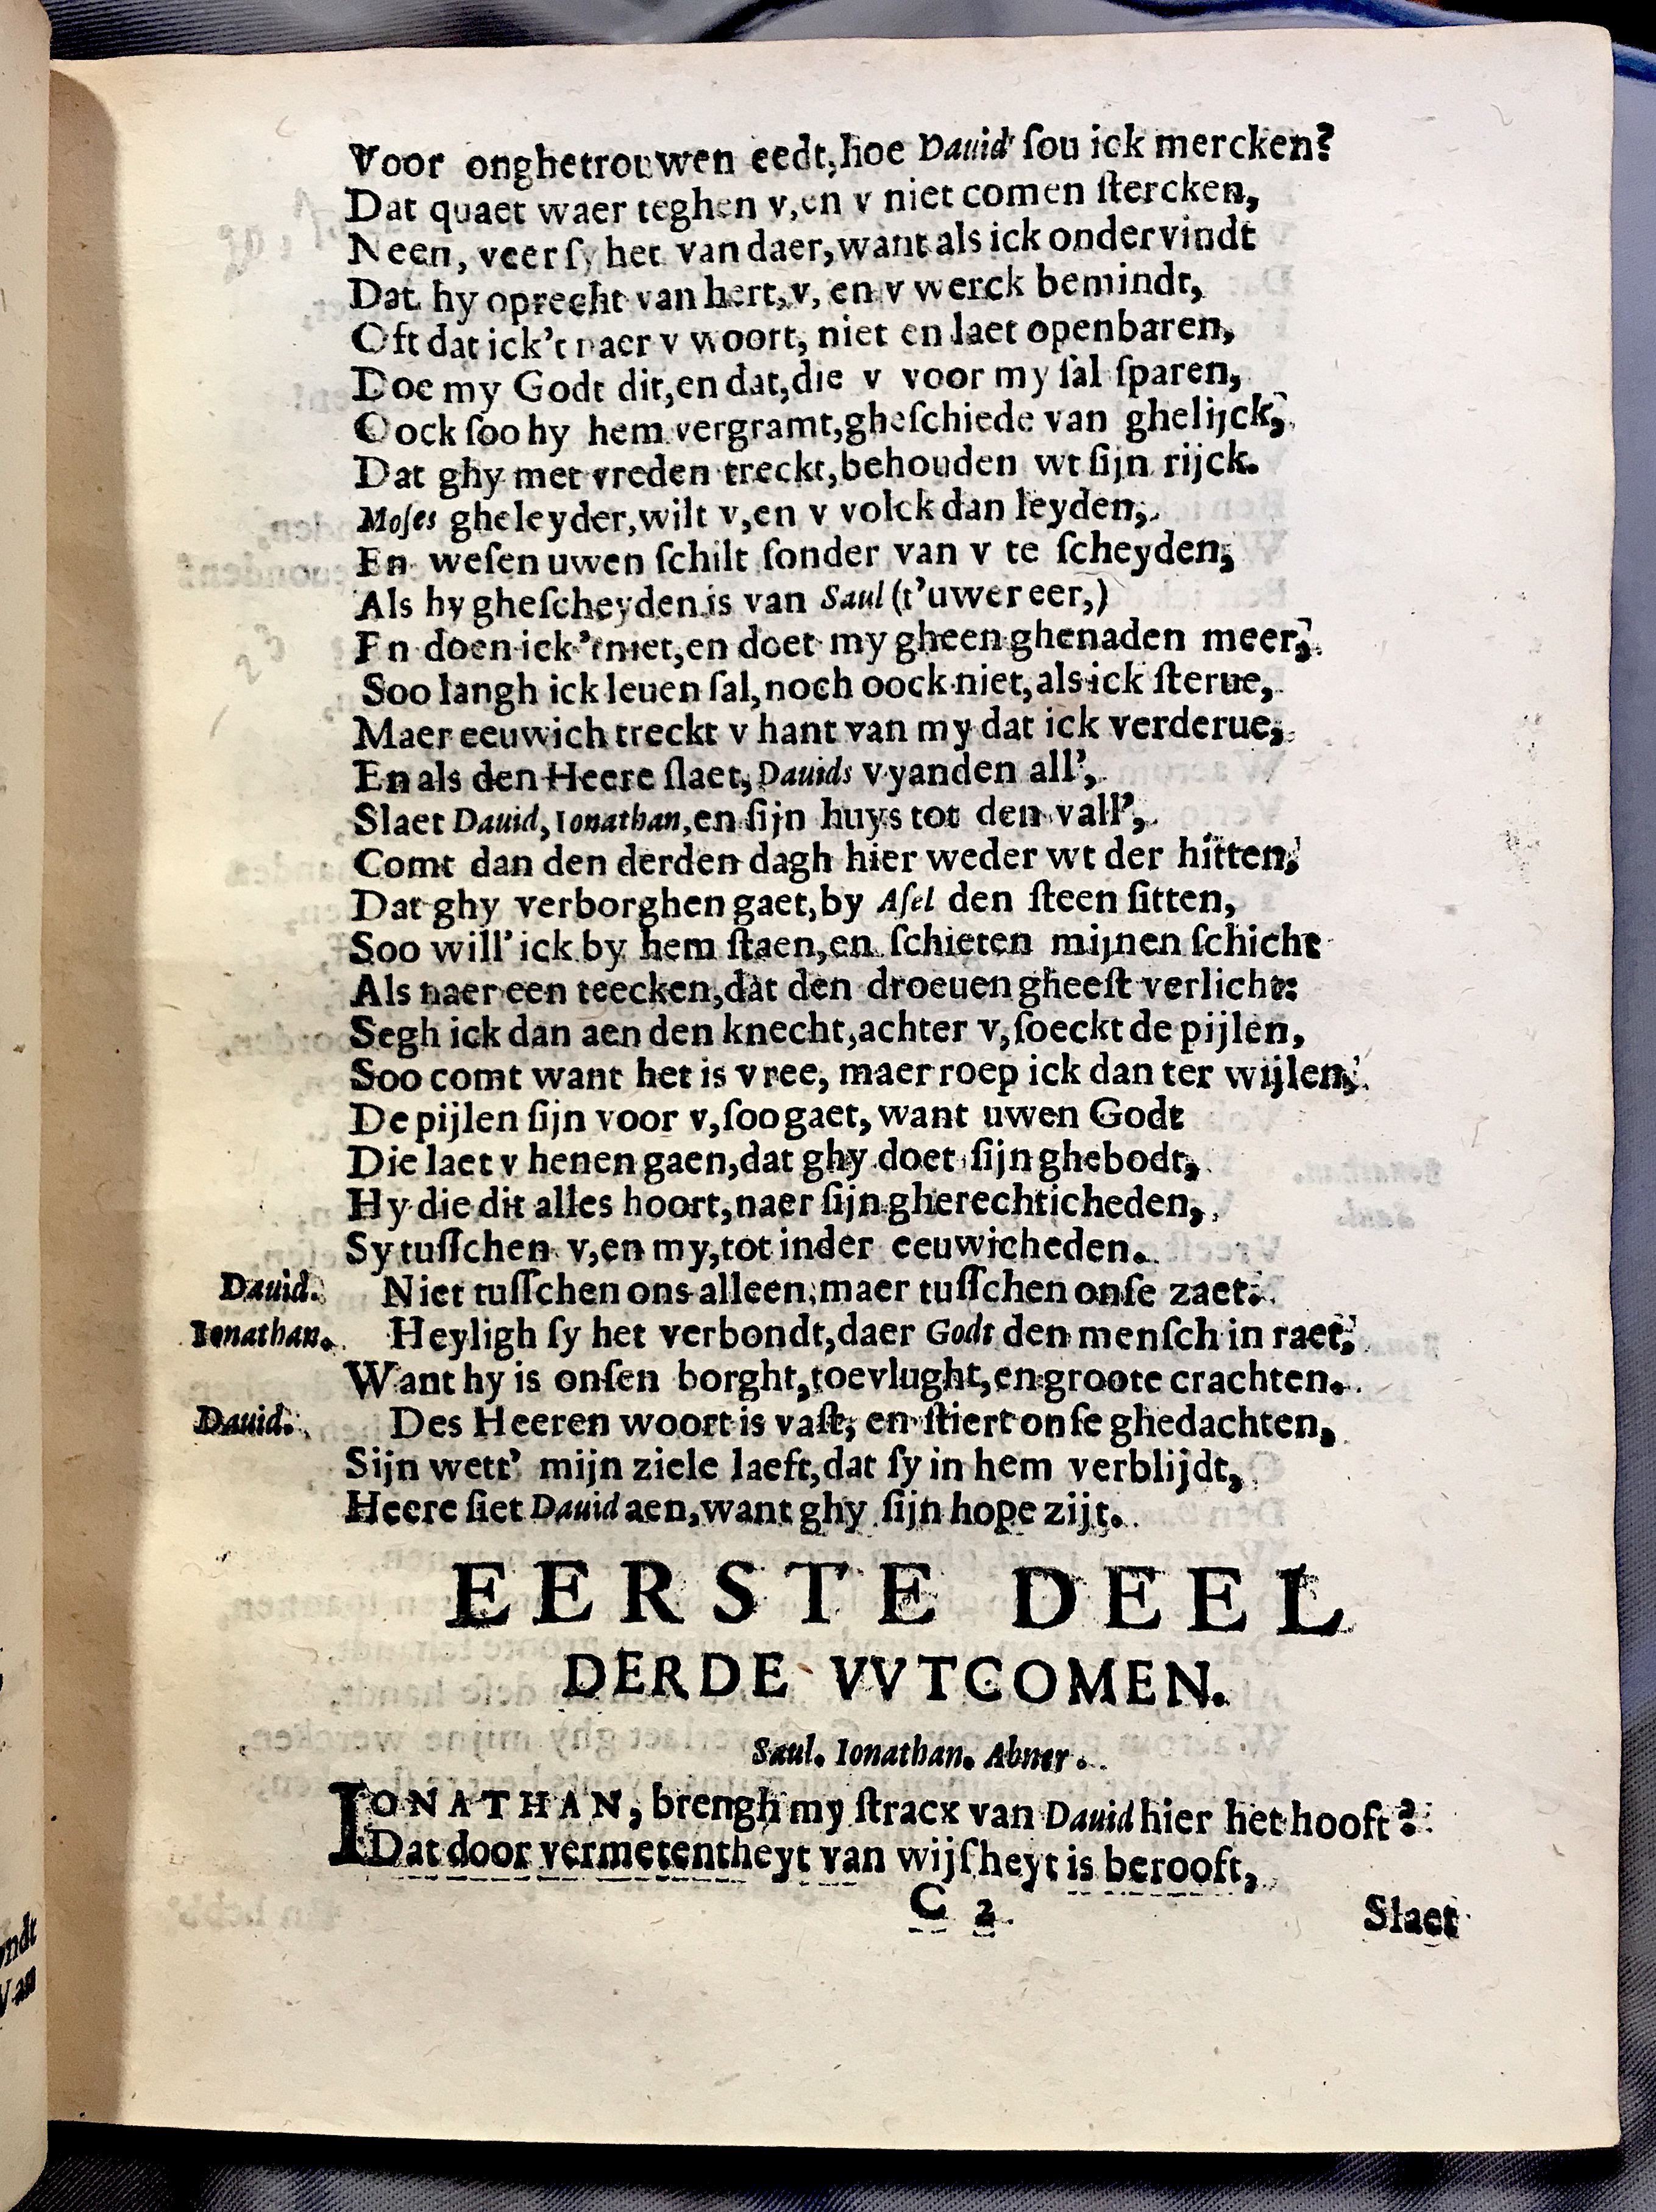 Voor onghetrouwen eedt, hoe Dauid ſou ick mercken?
Dat quaet waer teghen v, en v niet comen ſtercken,
Neen, veer ſy het van daer, want als ick ondervindt
Dat hy oprecht van hert, v, en v werck bemindt,
Oft dat ick't naer v woort, niet en laet openbaren,
Doe my Godt dit, en dat, die v voor my ſal ſparen,
Oock ſoo hy hem vergramt, gheſchiede van ghelijck,
Dat ghy met vreden treckt, behouden wt ſijn rijck.
Moſes gheleyder, wilt v, en v volck dan leyden,
En weſen uwen ſchilt ſonder van v te ſcheyden,
Als hy gheſcheyden is van Saul (t'uwer eer,)
En doen ick't niet, en doet my gheen ghenaden meer,
Soo langh ick leuen ſal, noch oock niet, als ick ſterue,
Maer eeuwich treckt v hant van my dat ick verderue,
En als den Heere ſlaet, Dauids vyanden all',
Slaet Dauid, Ionathan, en ſijn huys tot den vall',
Comt dan den derden dagh hier weder wt der hitten,
Dat ghy verborghen gaet, by Aſel den ſteen ſitten,
Soo will' ick by hem ſtaen, en ſchieten mijnen ſchicht
Als naer een teecken, dat den droeuen gheeſt verlicht:
Segh ick dan aen den knecht, achter v, ſoeckt de pijlen,
Soo comt want het is vree, maer roep ick dan ter wijlen,
De pijlen ſijn voor v, ſoo gaet, want uwen Godt
Die laet v henen gaen, dat ghy doet ſijn ghebodt,
Hy die dit alles hoort, naer ſijn gherechticheden,
Sy tuſſchen v, en my, tot inder eeuwicheden.
Dauid. Niet tuſſchen ons alleen, maer tuſſchen onſe zaet.
Ionathan. Heyligh ſy het verbondt, daer Godt den menſch in raet,
Want hy is onſen borght, toevlught, en groote crachten.
Dauid. Des Heeren woort is vaſt, en ſtiert onſe ghedachten,
Sijn wett' mijn ziele laeft, dat ſy in hem verblijdt,
Heere ſiet Dauid aen, want ghy ſijn hope zijt.
EERSTE DEEL
DERDE VVTCOMEN.
Saul. Ionathan. Abner.
IONATHAN, brengh my ſtracx van Dauid hier het hooft?
Dat door vermetentheyt van wijſheyt is berooft,
C 2
Slaet